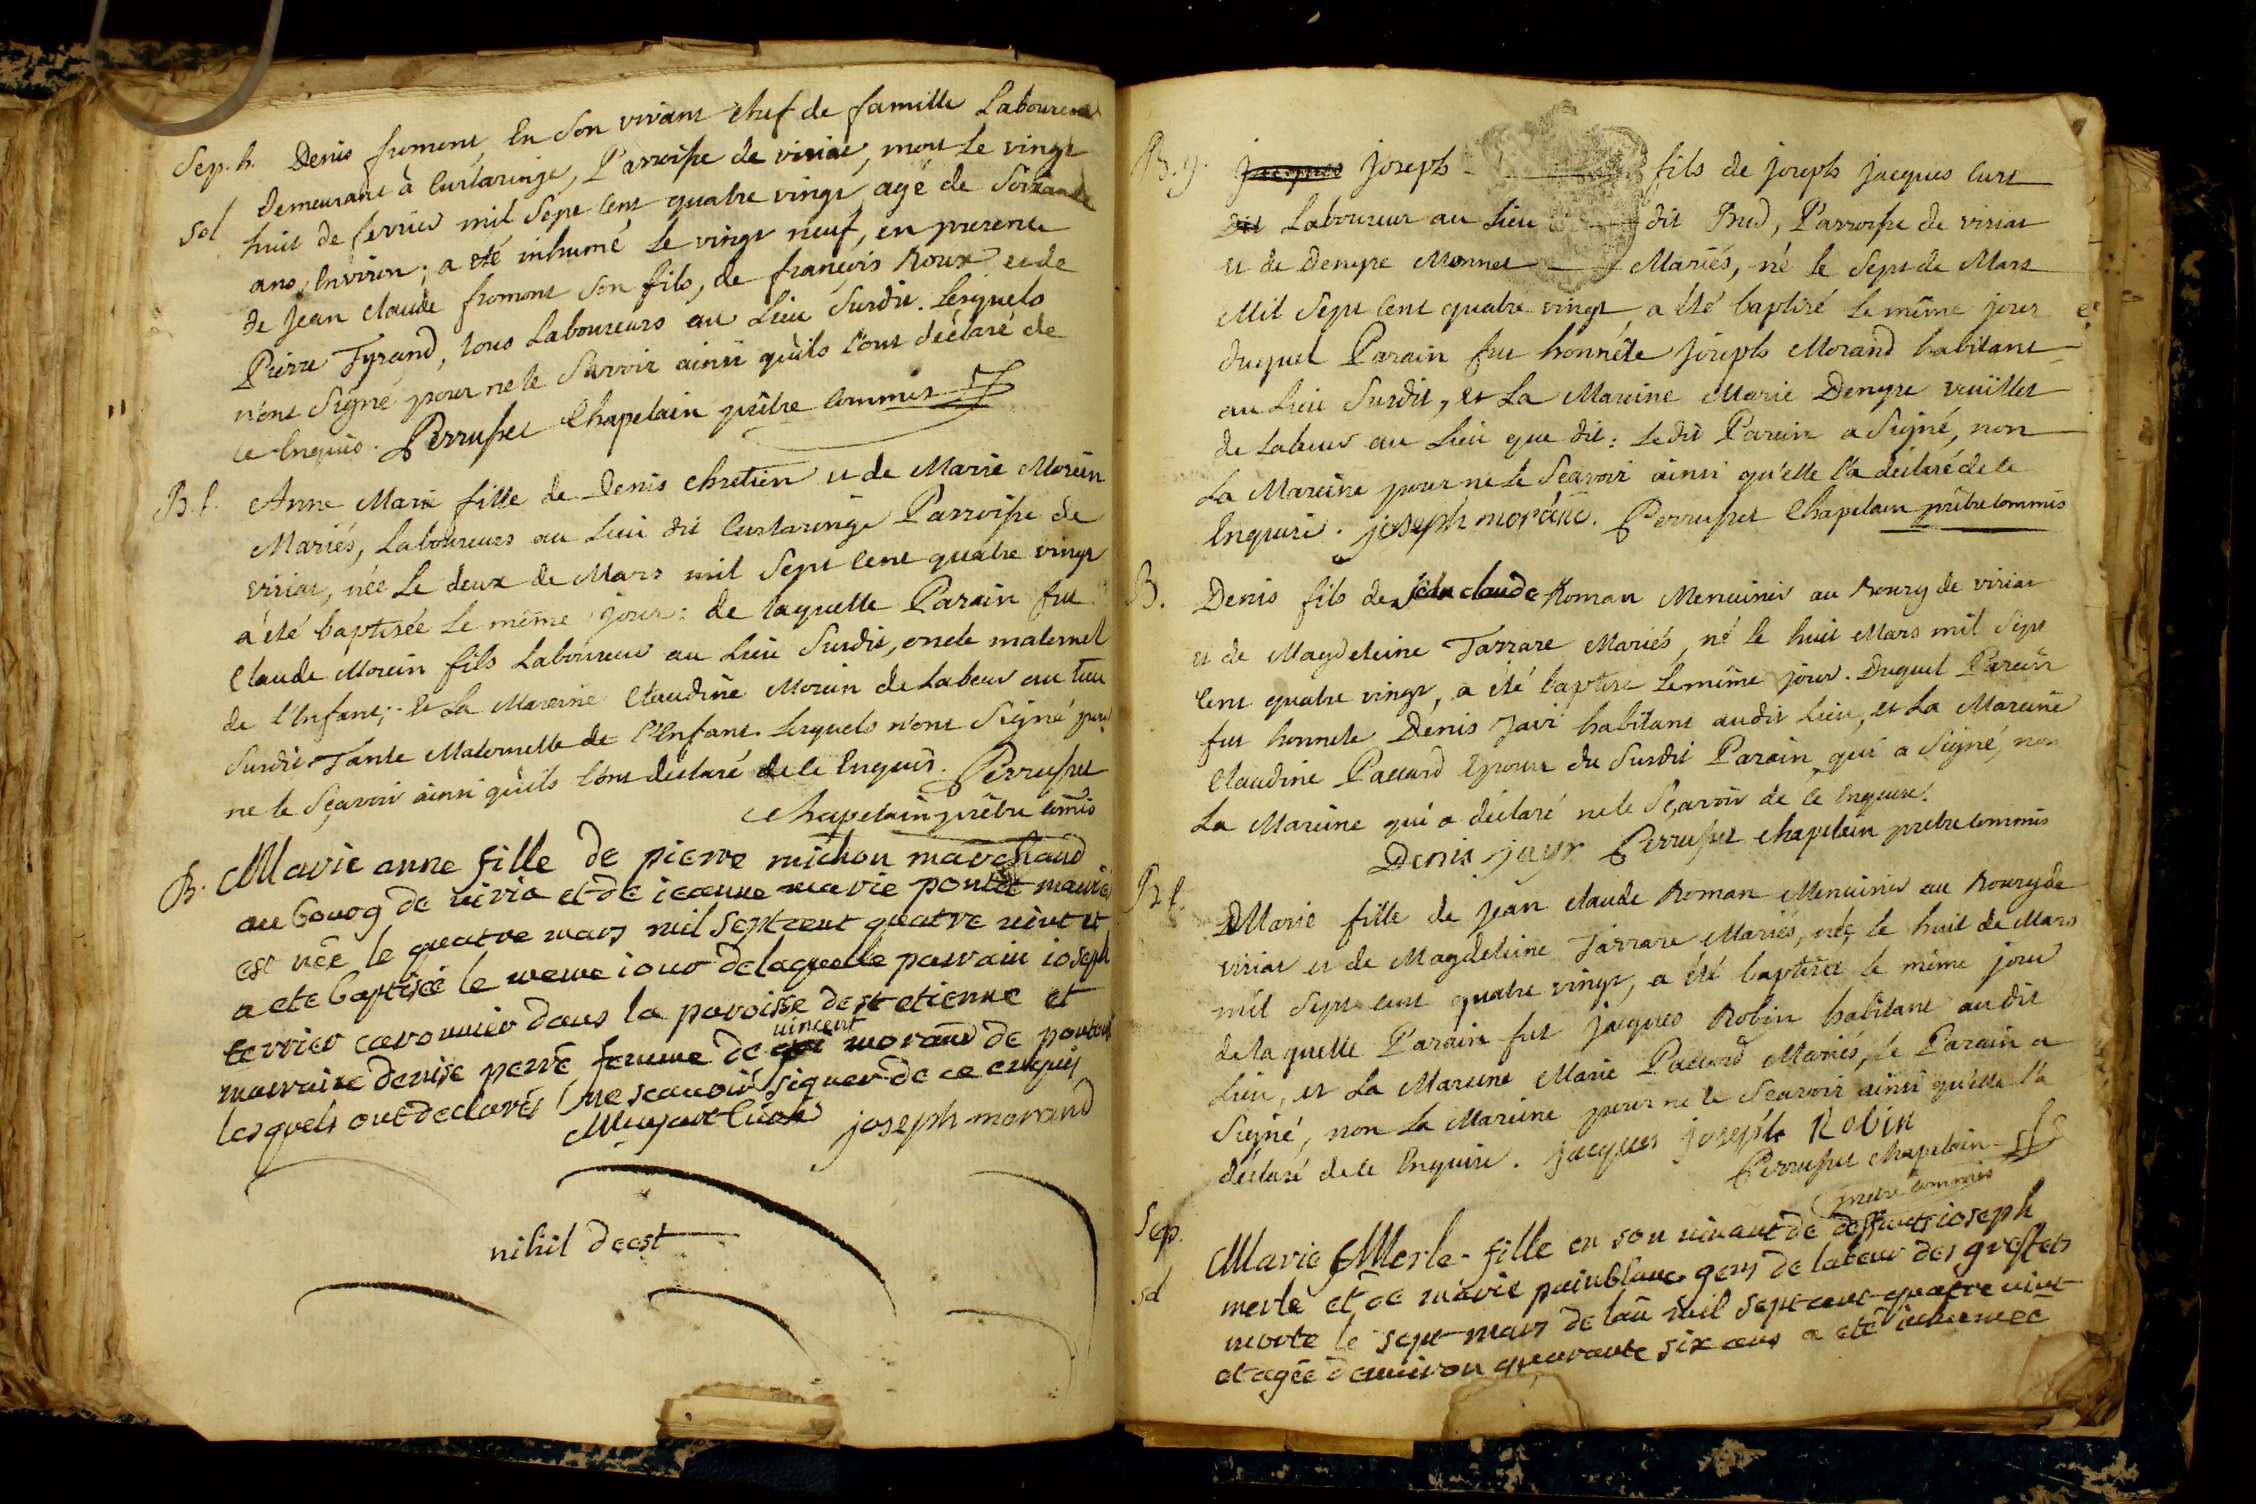 Sep. h. Denis fromont En Son vivant Chef de famille Laboureur
demeurant à Curtaringe, Parroisse de viriat, mort Le vingt
Sol huit de fevrier mil Sept Cent quatre vingt agé de Soixante
ans Environ; a été inhumé Le vingt neuf, en presence
de Jean claude fromont Son fils, de françois Roux et de
Pierre Tyrand, tous Laboureurs au Lieu Susdit. Lesquels
n'ont Signé pour ne le Savoir ainsi qu'ils l'ont déclaré de
ce Enquis. Perruset Chapelain prêtre Commis
B. f. Anne Marie fille de Denis Chretien et de Marie Morein
Mariés, Laboureurs au Lieu dit Curtaringe Parroisse de
viriat, née Le deux de Mars mil Sept Cent quatre vingt
a été baptisée Le même jour: de laquelle Parain fut
Claude Morein fils Laboureur au Lieu Susdit, oncle maternel
de l'Enfant; Et La Mareine Claudine Morein de Labeur au Lieu
Susdit Tante Maternelle de l'Enfant. Lesquels n'ont Signé pour
ne le Sçavoir ainsi qu'ils l'ont declaré de ce Enquis. Perruset
Chapelain prêtre comis
B. Marie anne fille de pierre michon marchand
au bourg de viria et de ieanne marie pontet mariés
est née le quatre mars mil sept cent quatre vint et
a ete baptisée le meme iour de laquelle parrain ioseph
terrier caronnier dans la paroisse de st etienne et
vincent
marraine denise perre femme de morand de
lesquels ont declarés ne scauoir signer de ce enquis
joseph morand
nihil deest
B. g. Jacques Joseph fils de joseph jacques Curt
dit Laboureur au Lieu dit Bud, Parroisse de viriat
et de Denyse Monnet Mariés, né le Sept de Mars
Mil Sept Cent quatre vingt, a été baptisé Le même jour
duquel Parain fut honnête Joseph Morand habitant
au Lieu Susdit, et La Mareine Marie Denyse vuillet
de Labeur au Lieu que dit: Ledit Parein a Signé, non
La Mareine pour ne Le Sçavoir ainsi qu'elle l'a déclaré de ce
Enquise. joseph morand. Perruset Chapelain prêtre Commis
B. Denis fils de jean claude Roman Menuisier au Bourg de viriat
et de Magdeleine Tarrare Mariés, né le huit Mars mil Sept
Cent quatre vingt, a été baptisé Le même jour. Duquel Parein
fut honnete Denis Jair habitant audit Lieu, et La Mareine
Claudine Paccard Epouse du Susdit Parain qui a Signé, non
La Mareine qui a déclaré ne le Sçavoir de ce Enquise.
Denis jayr Perruset Chapelain prêtre Commis
B. f. Marie fille de Jean Claude Roman Menuisier au Bourg de
viriat et de Magdeleine Tarrare Mariés, née le huit de Mars
mil Sept cent quatre vingt, a été baptisée le même jour
de laquelle Parain fut Jacques Robin habitant audit
Lieu, et La Mareine Marie Paccard Mariés, Le Parain a
Signé, non La Mareine pour ne le Scavoir ainsi qu'elle l'a
déclaré de ce Enquise. jacques joseph Robin
Perruset Chapelain
pretre Commis
Sep. Marie Merle fille en son vivant de deffunt ioseph
sol merle et de marie painblanc gens de labeur des greffets
morte le sept mars de l'an mil sept cent quatre vint
et agée d'environ quarante six ans a eté inhumeé